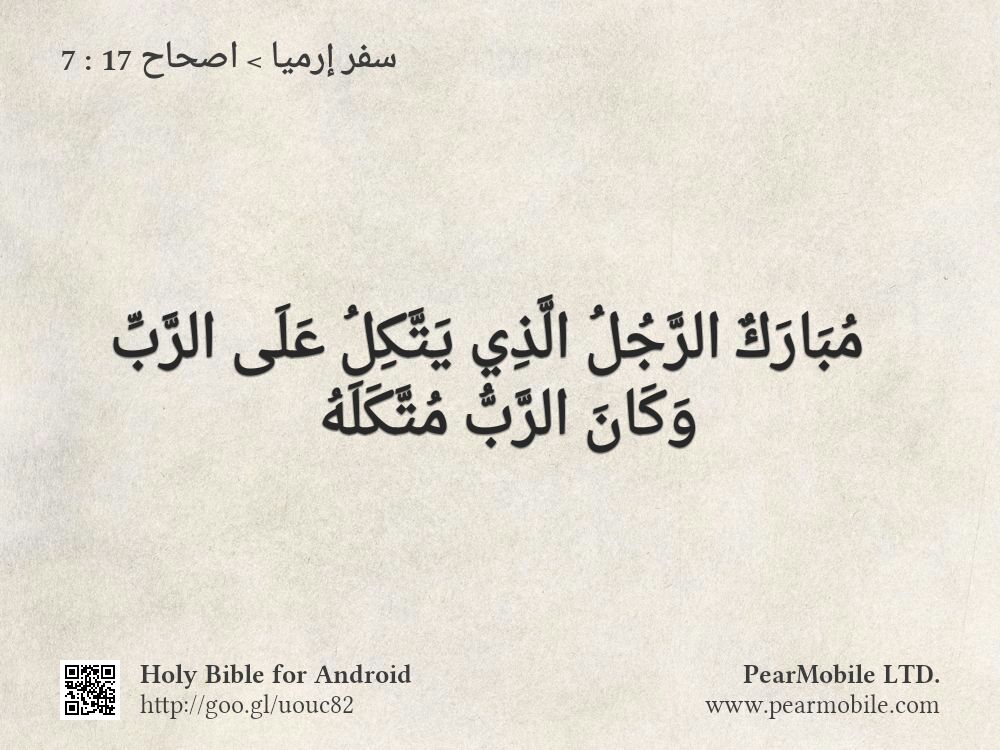 سفر إرميا > اصحاح 17 : 7
مُبَارَكٌ الرَّجُلُ الَّذِي يَتَّكِلُ عَلَى الرَّبِّ
وَكَانَ الرَّبُّ مُتَّكَلَهُ
Holy Bible for Android
http://goo.gl/uouc82
PearMobile LTD.
www.pearmobile.com